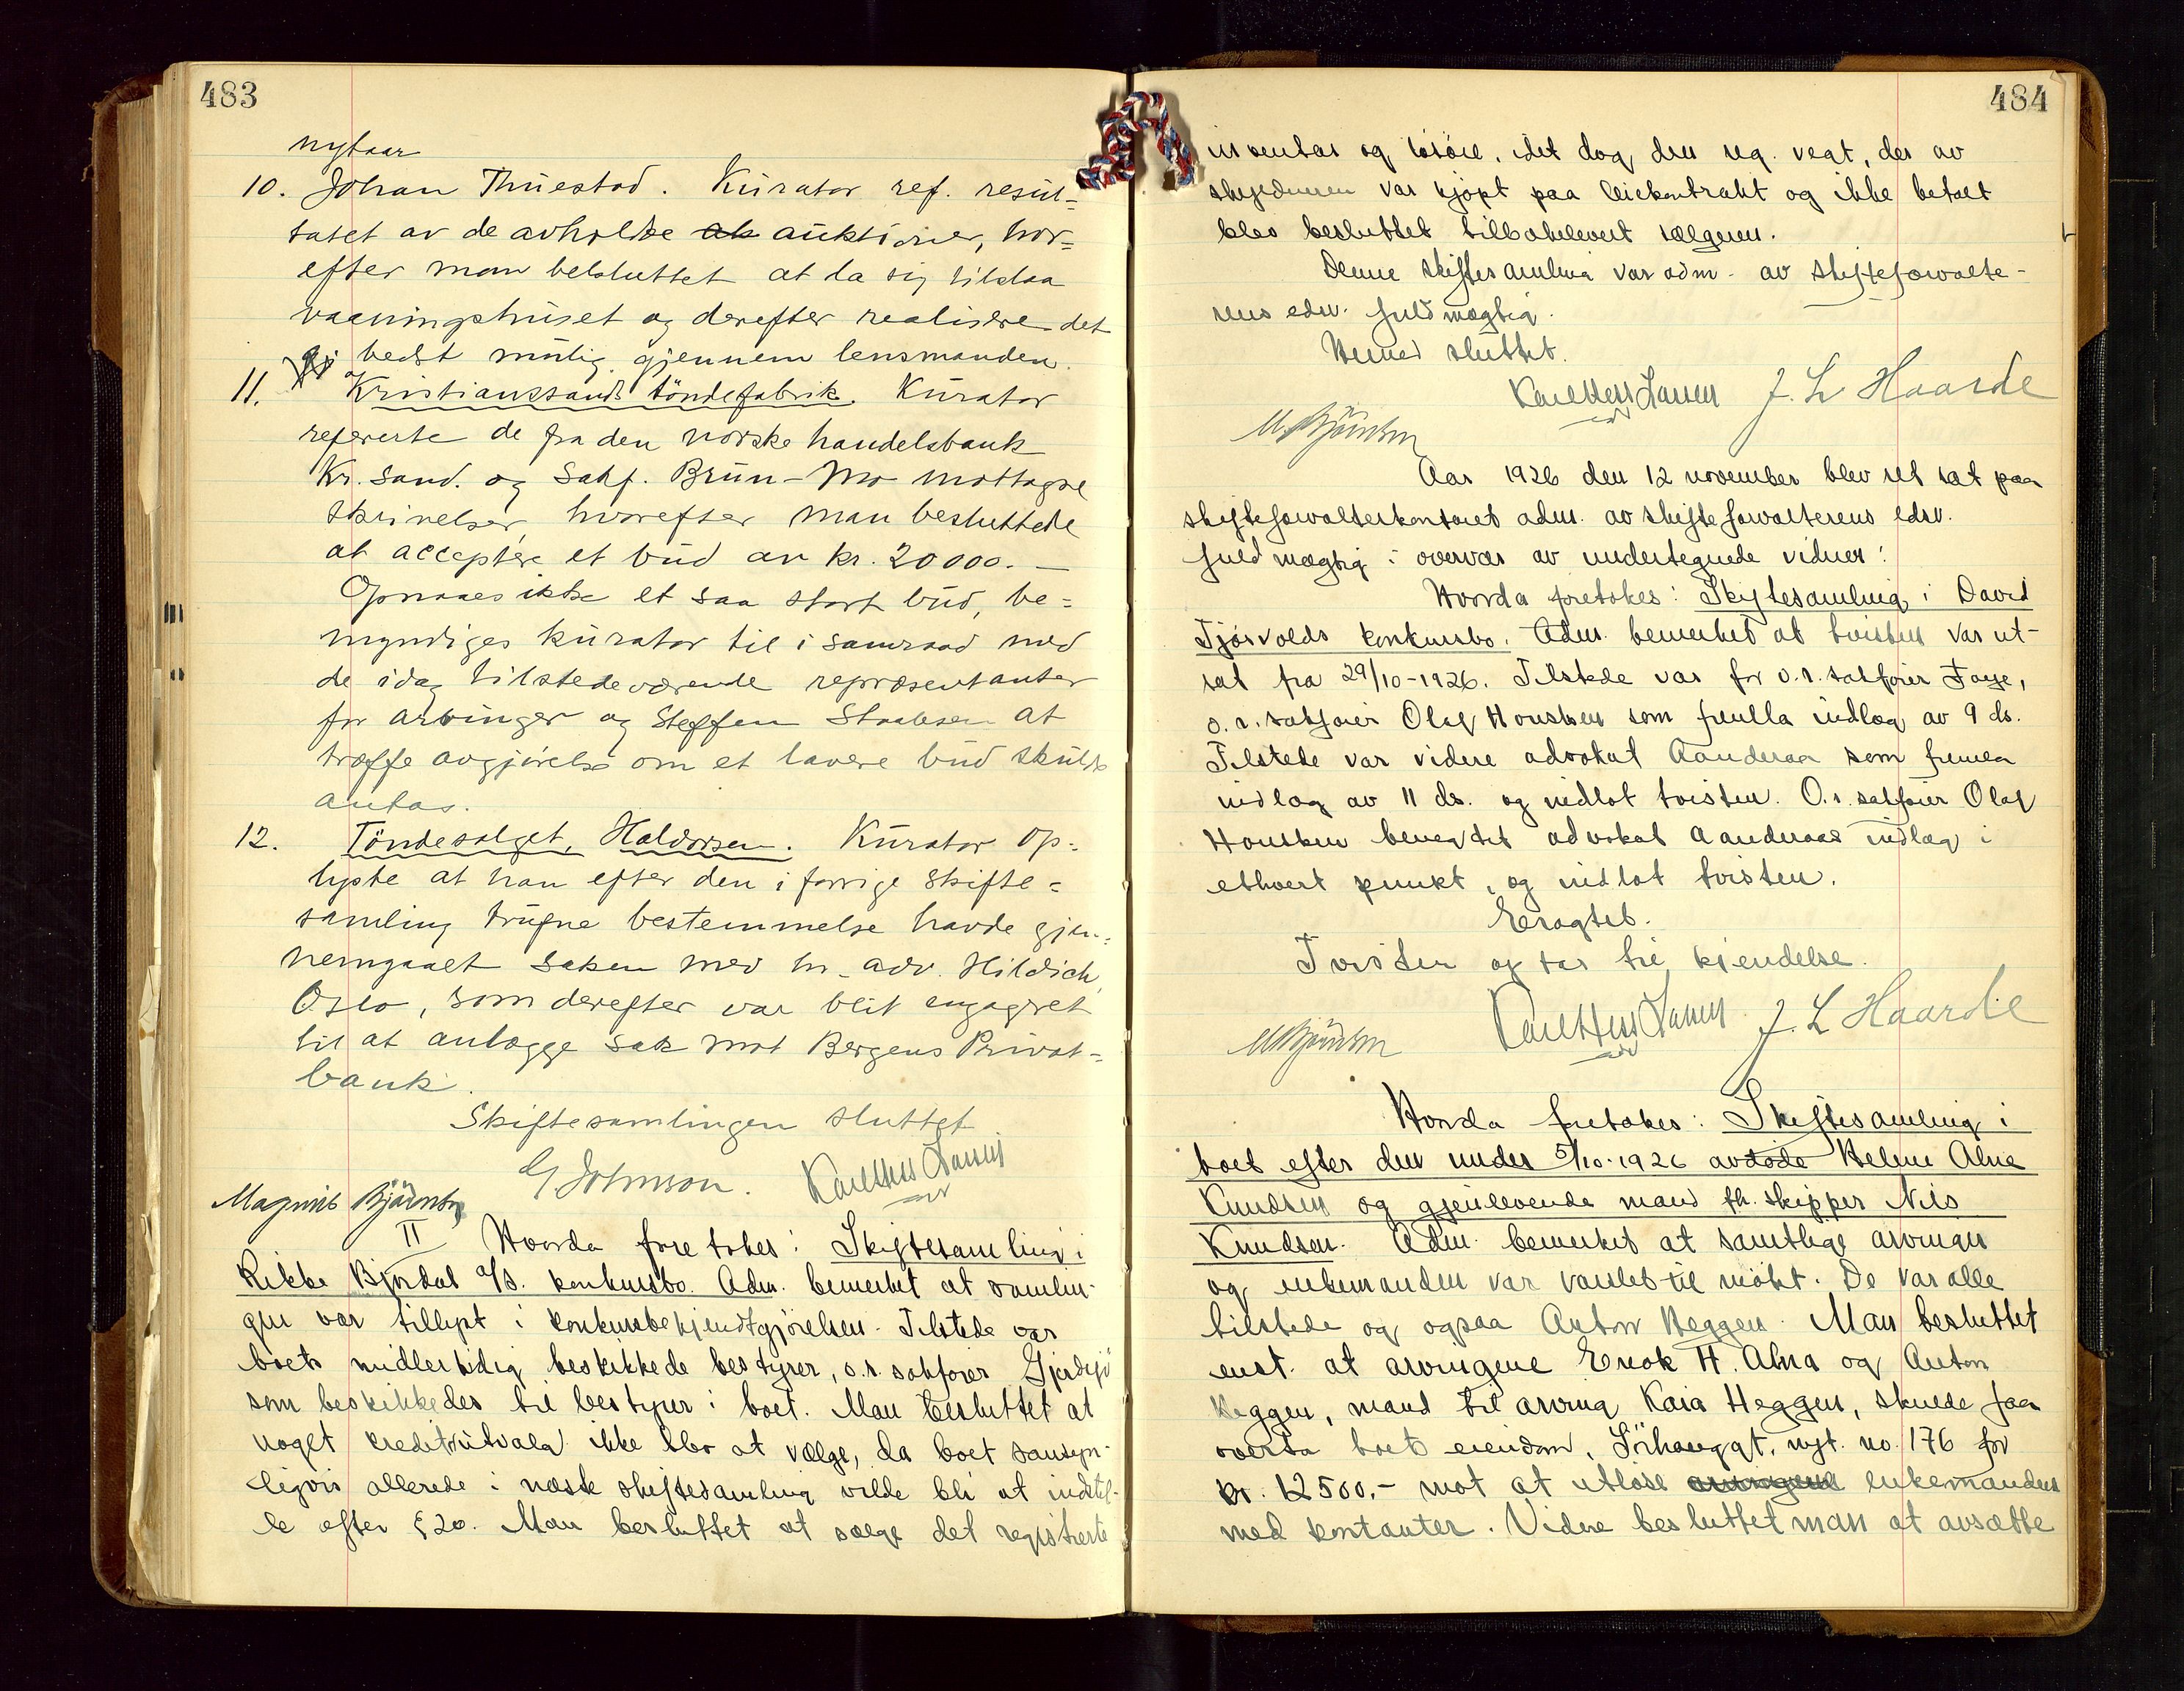 483
nytaar
10. Johan Thuestad. Kurator ref. resul=
tatet av de avholdte auktioner, hvor=
efter man belsluttet at la sig tilslaa
vaaningshuset og derefter realisere det
bedst mulig gjennem lensmanden.
11. Kristianssands töndefabrik. Kurator
refererte de fra den norske handelsbank
Kr.sand. og Sakf. Brun-Mo mottagne
skrivelser, hvorefter man besluttede
at acceptere et bud av kr. 20000.-
Opnaaes ikke et saa stort bud, be=
myndiges kurator til i samraad med
de idag tilstedeværende repræsentanter
for arvinger og Steffen Staalesen at
træffe avgjörelse om et lavere bud skulde
antas.
12. Töndesalget, Haldorsen. Kurator op=
lyste at han efter den i forrige skifte=
samling trufne bestemmelse havde gjen=
nemgaaet saken med hr. adv. Hildich,
Oslo, som derefter var blit engagert
til at anlægge sak mot Bergens Privat=
bank.
Skiftesamlingen sluttet
G Johnson. Karl Hess Larsen
Magnus Bjørnsen
II Hvorda foretokes: Skiftesamling i
Rikke Bjordal a/s. konkursbo. Adm. bemerket at samlin-
gen var tillyst i konkursbekjendtgjörelsen. Tilstede var
boets midlertidig beskikkede bestyrer, o.r. sakförer Gjerdsjö
som beskikkedes til bestyrer i boet. Man besluttet at
noget kreditvalg ikke blev at vælge, da boet sansyn-
ligvis allerede i næste skiftesamling vilde bli at indstil-
le efter § 20. Man besluttet at sælge det registrerte
484
inventar og lösöre, idet dog den reg. vegt, der av
skyldneren var kjöpt paa leiekontrakt og ikke betalt
blev besluttet tilbakelevert sælgeren.
Denne skiftesamling var adm. av skifteforvalte-
rens edsv. fuldmægtig.
Hermed sluttet.
Karl Hess Larsen J. L Haarde
M. Bjørnsen
Aar 1926 den 12 november blev ret sat paa
skifteforvalterkontoret adm. av skifteforvalterens edsv.
fuldmægtig i overvær av undertegnede vidner:
Hvorda foretokes: Skiftesamling i David
Tjösvolds konkursbo. Adm. bemerket at tvisten var ut-
sat fra 29/10-1926. Tilstede var for o.r. sakförer Faye,
o.r. sakförer Olaf Housken som fremla indlæg av 9 ds.
Tilstede var videre advokat Aanderaa som fremla
indlæg av 11 ds. og indlot tvisten. O.r. sakförer Olaf
Housken benegtet advokat Aanderaas indlæg i
ethvert punkt, og indlot tvisten.
Eragtet.
Tvisten optas til kjendelse.
M Bjørnsen Karl Hess Larsen J. L Haarde
Hvorda foretokes: Skiftesamling i
boet efter den under 5/10-1926 avdöde Helene Alne
Knudsen og gjenlevende mand fh. skipper Nils
Knudsen. Adm. bemerket at samtlige arvinger
og enkemanden var varslet til mötet. De var alle
tilstede og ogsaa Anton Heggen. Man besluttet
enst. at arvingene Enok H. Alna og Anton
Heggen, mand til arving Kaia Heggen, skulde faa
overta boets eiendom, Sörhauggt. nyt. no. 176 for
kr. 12500,- mot at utlöse enkemanden
med kontanter. Videre besluttet man at avsætte